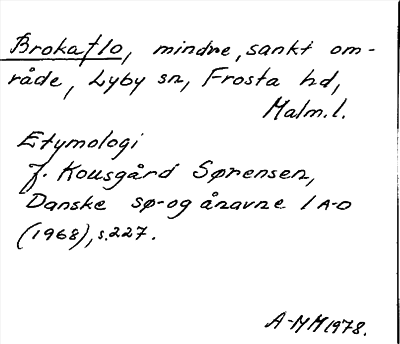 Brokaflo, mindre, sankt om-
råde, Lyby sn, Frosta hd,
Malm. l.
Etymologi
J. Kousgård Sørensen,
Danske sø- og ånavne 1 A-D
(1968), s. 227.
A-MM 1978.